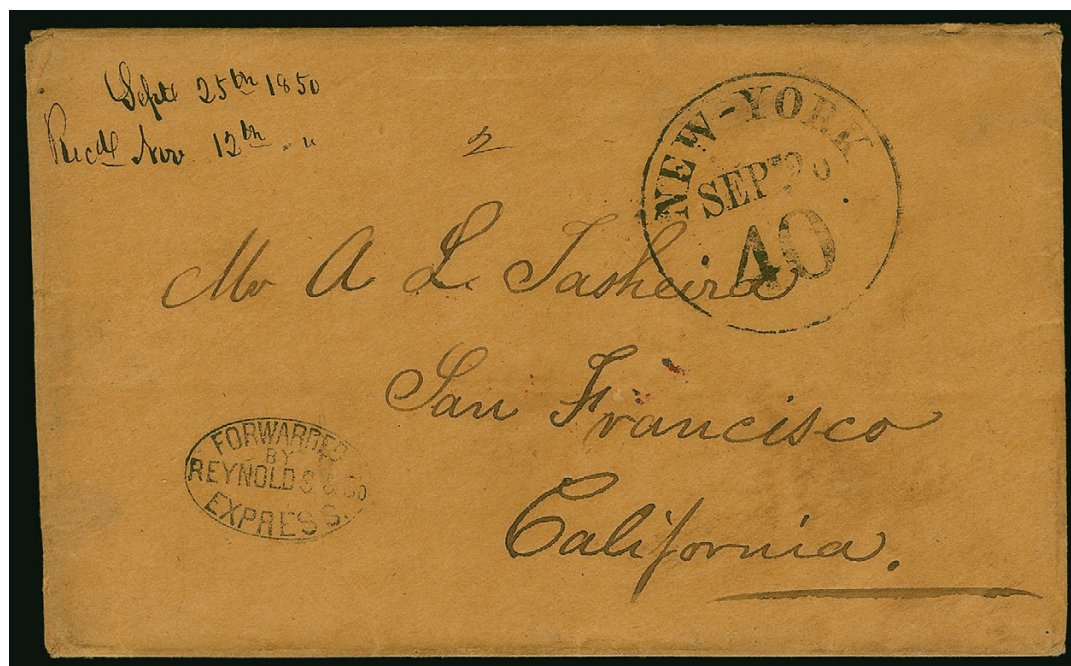 Sept 25th 1850
Recd Nov 12th "
2
NEW-YORK
SEPT 26
40
Mr A L Tasheira
San Francisco
California.
FORWARDED
BY
REYNOLDS & Co
EXPRESS.